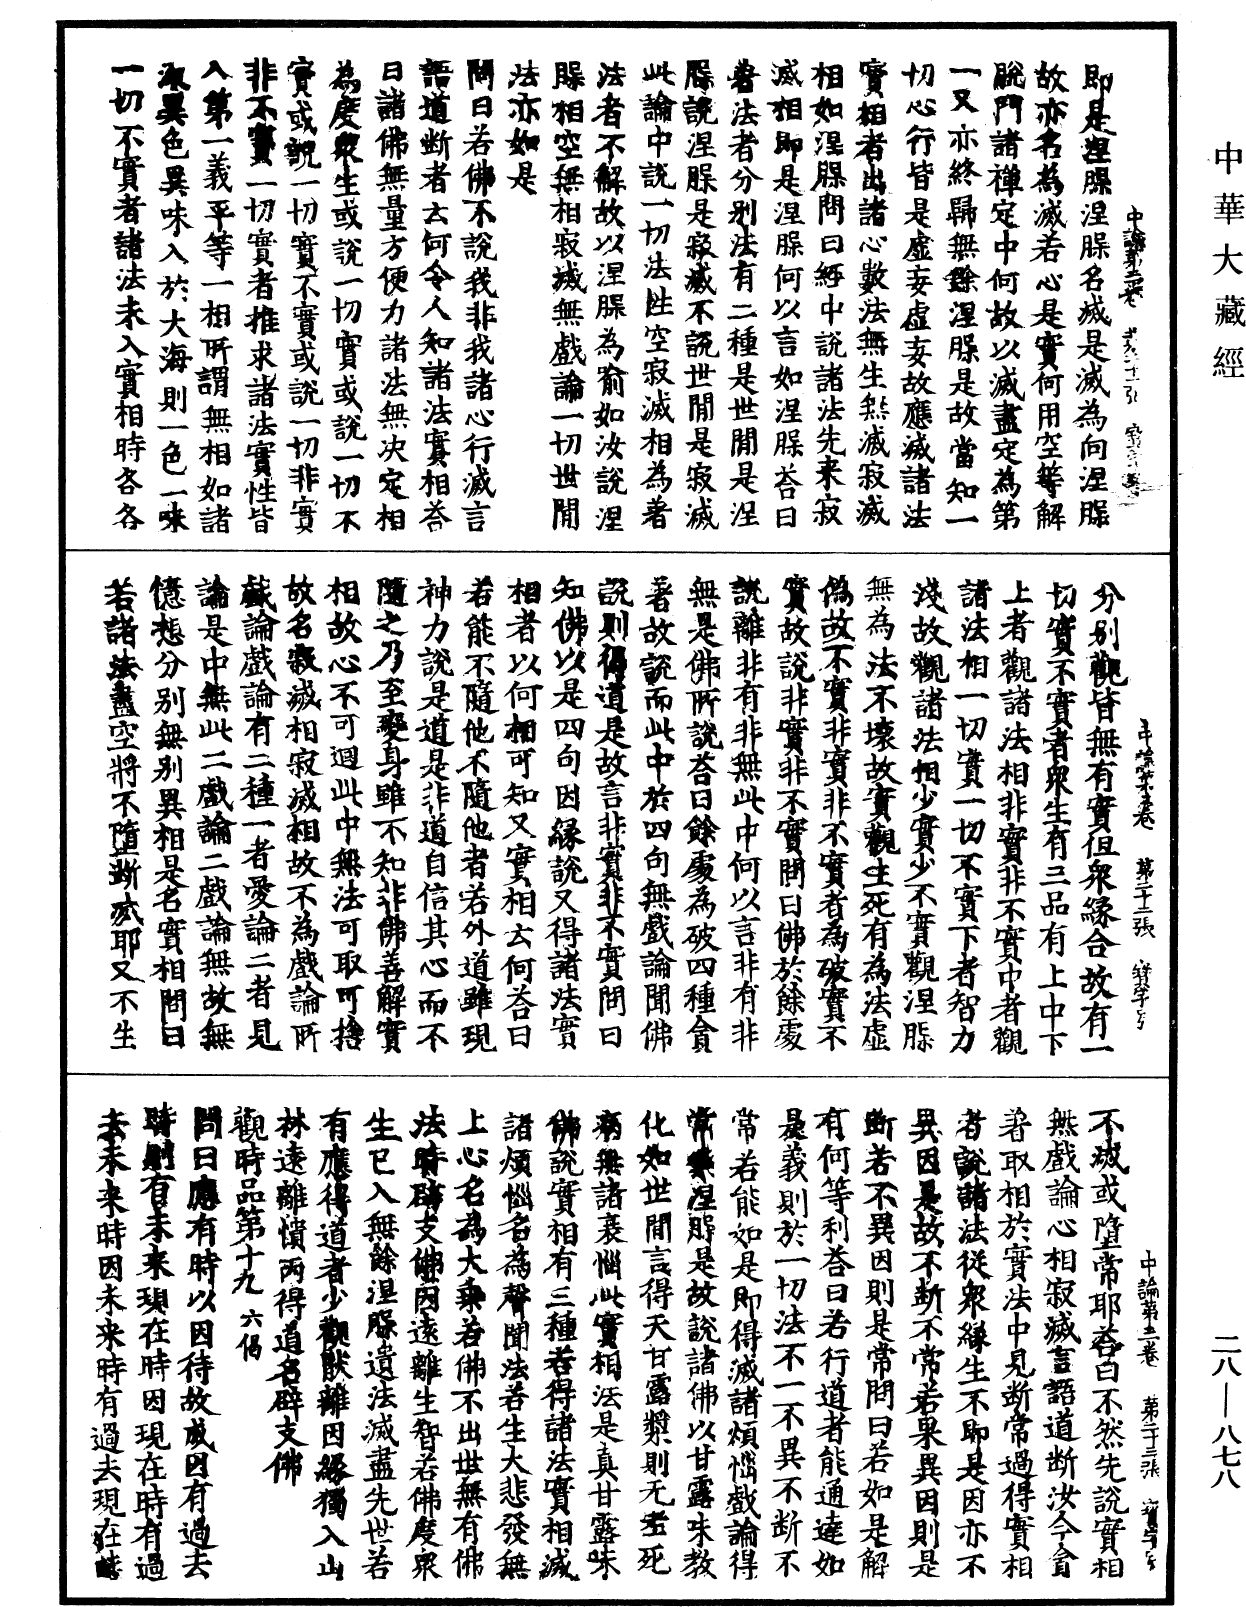 中華大藏經
中論第三卷
即是涅脲涅脲名滅是滅為向涅脲
故亦名為滅若心是實何用空等解
脫門諸禪定中何故以滅盡定為第
一又亦終歸無餘涅脲是故當知一
切心行皆是虛妄虛妄故應滅諸法
實相者出諸心數法無生無滅寂滅
相如涅脲問曰經中說諸法先來寂
滅相即是涅脲何以言如涅脲荅曰
著法者分別法有二種是世閒是涅
脲說涅脲是寂滅不說世閒是寂滅
此論中說一切法性空寂滅相為著
法者不解故以涅脲為喻如汝說涅
脲相空無相寂滅無戲論一切世閒
法亦如是
問曰若佛不說我非我諸心行滅言
語道斷者云何令人知諸法實相荅
曰諸佛無量方便力諸法無決定相
為度眾生或說一切實或說一切不
實或說一切實不實或說一切非實
非不實一切實者推求諸法實性皆
入第一義平等一相所謂無相如諸
流異色異味入於大海則一色一味
一切不實者諸法未入實相時各各
中論第三卷 第二十二張
分別觀皆無有實但眾緣合故有一
切實不實者眾生有三品有上中下
上者觀諸法相非實非不實中者觀
諸法相一切實一切不實下者智力
淺故觀諸法相少實少不實觀涅脲
無為法不壞故實觀生死有為法虛
偽故不實非實非不實者為破實不
實故說非實非不實問曰佛於餘處
說離非有非無此中何以言非有非
無是佛所說荅曰餘處為破四種貪
著故說而此中於四句無戲論聞佛
說則得道是故言非實非不實問曰
知佛以是四句因緣說又得諸法實
相者以何相可知又實相云何荅曰
若能不隨他不隨他者若外道雖現
神力說是道是非道自信其心而不
隨之乃至變身雖不知非佛善解實
相故心不可迴此中無法可取可捨
故名寂滅相寂滅相故不為戲論所
戲論戲論有二種一者愛論二者見
論是中無此二戲論二戲論無故無
憶想分別無別異相是名實相問曰
若諸法盡空將不墮斷滅耶又不生
中論第三卷 第二十三張
不滅或墮常耶荅曰不然先說實相
無戲論心相寂滅言語道斷汝今貪
著取相於實法中見斷常過得實相
者說諸法從眾緣生不即是因亦不
異因是故不斷不常若果異因則是
斷若不異因則是常問曰若如是解
有何等利荅曰若行道者能通達如
是義則於一切法不一不異不斷不
常若能如是即得滅諸煩惱戲論得
常樂涅脲是故說諸佛以甘露味教
化如世閒言得天甘露漿則无老死
病無諸衰惱此實相法是真甘露味
佛說實相有三種若得諸法實相滅
諸煩惱名為聲聞法若生大悲發無
上心名為大乘若佛不出世無有佛
法時辟支佛因遠離生智若佛度眾
生已入無餘涅脲遺法滅盡先世若
有應得道者少觀猒離因緣獨入山
林遠離憒丙得道名辟支佛
觀時品第十九 六偈
問曰應有時以因待故成因有過去
時則有未來現在時因現在時有過
去未來時因未來時有過去現在時
二八—八七八